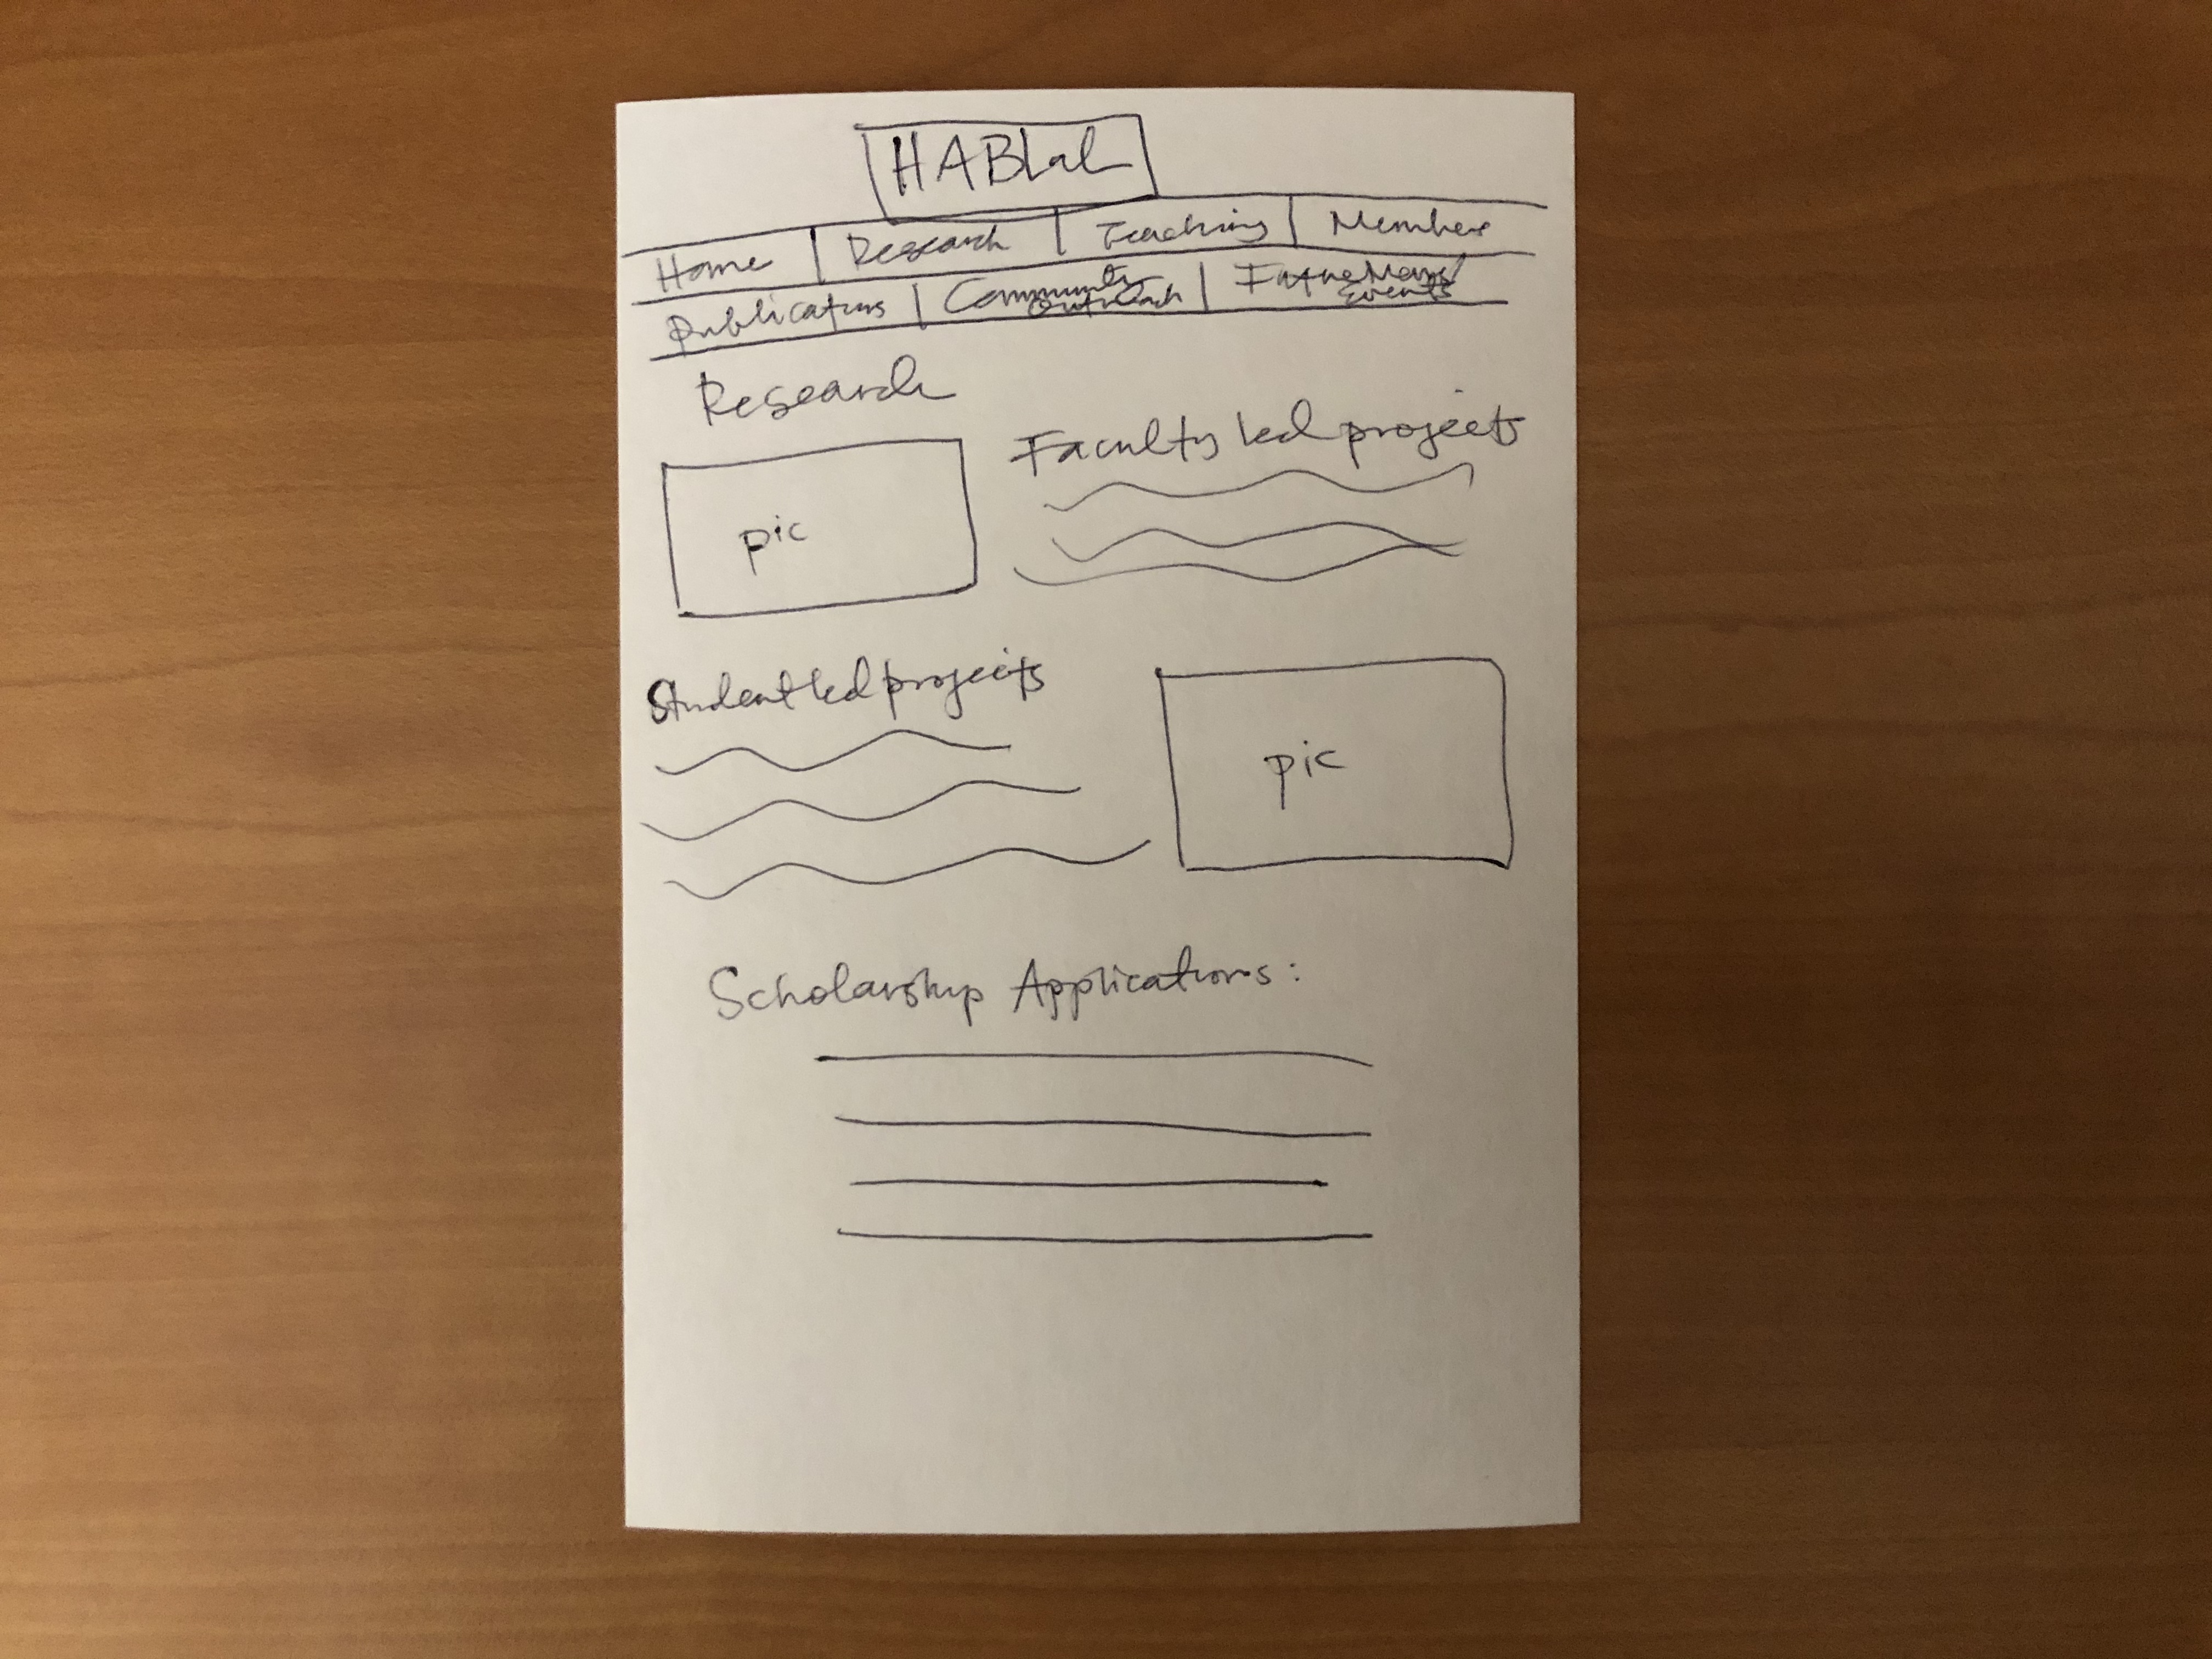 HABLab
Home | Research | Teaching | Members
Publications | Community Outreach | Future Meng/Events
Research
Faculty led projects
pic
Student led projects
pic
Scholarship Applications: